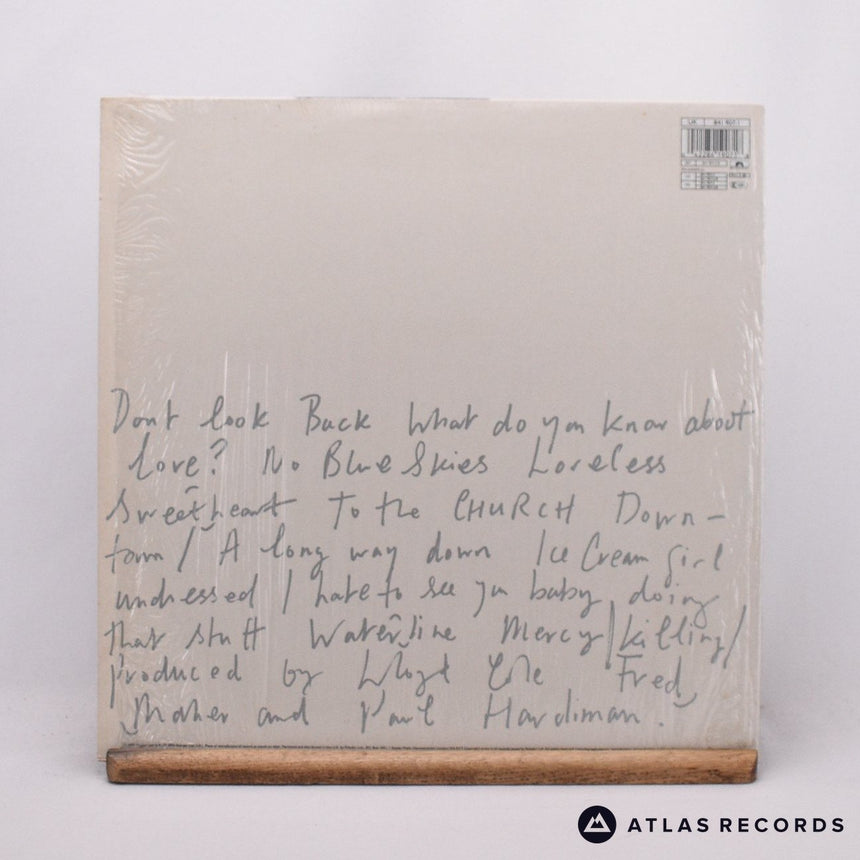 UK 841 907-1
Dont look Back What do you know about
love? No Blue Skies Loveless
Sweetheart To the CHURCH Down-
town / A long way down Ice Cream girl
undressed I hate to see you baby doing
that stuff Waterline Mercy/killing/
produced by Lloyd Cole Fred
Maher and Paul Hardiman.
ATLAS RECORDS